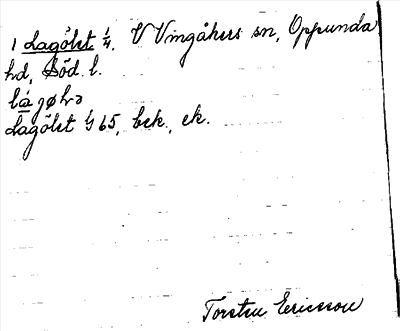 1 Lagölet ¼, V Vingåkers sn, Oppunda
hd, Söd. l.
lágøhɔ
Lagölet G 65, bek., ek.
Torsten Ericsson